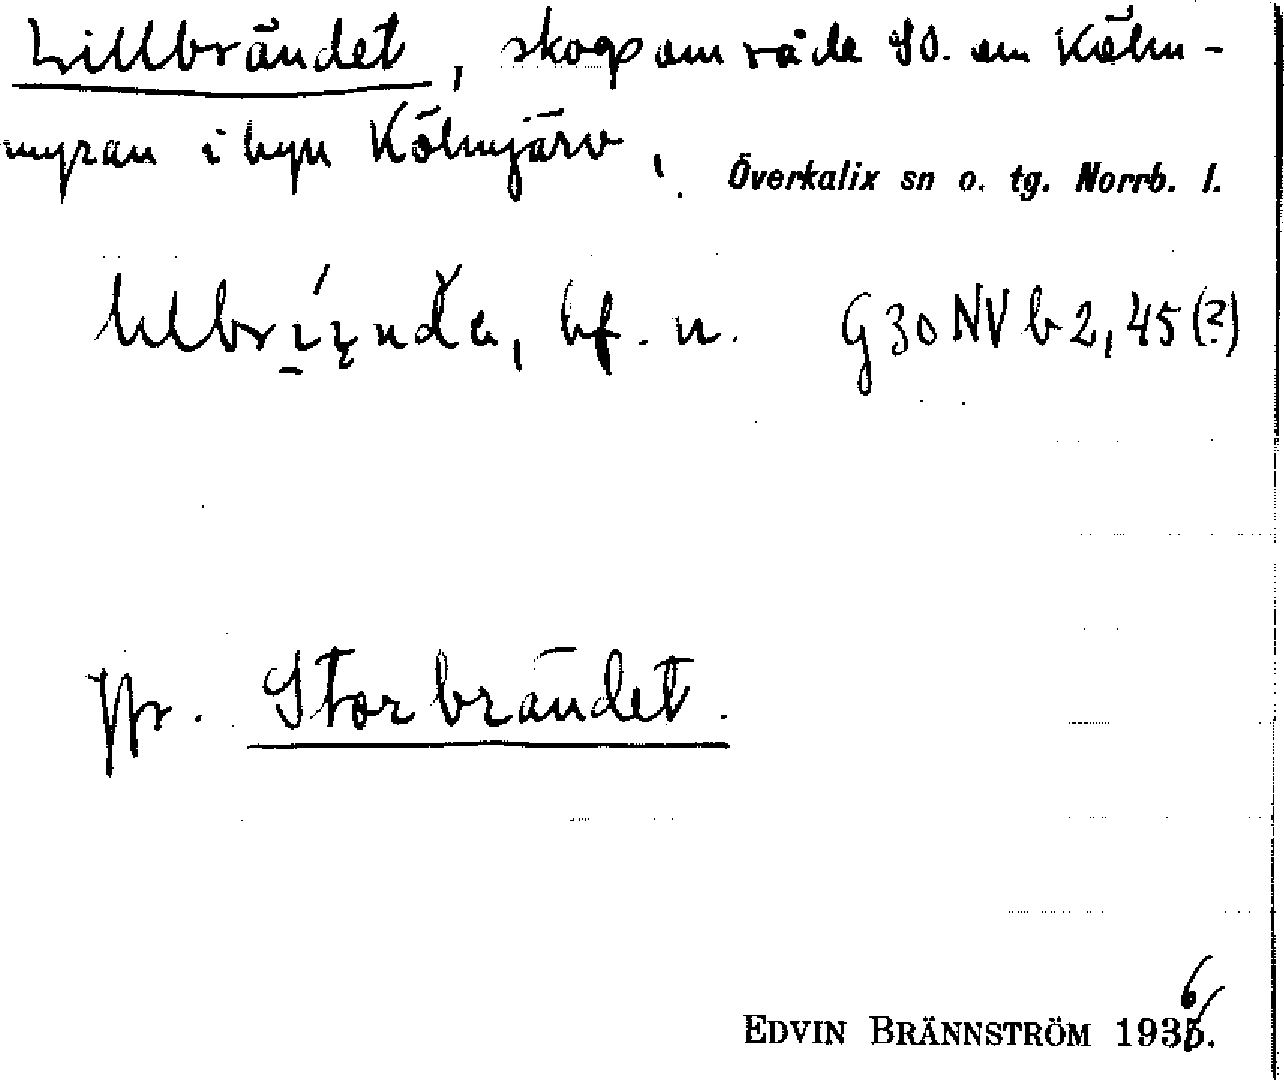 Lillbrändet, skogsområde SO. om Kölm-
myran i byn Kölmjärv.
Överkalix sn o. tg. Norrb. l.
bf. n. G 30 NV b 2, 45 (?)
Jfr. Storbrändet.
6
EDVIN BRÄNNSTRÖM 1935.